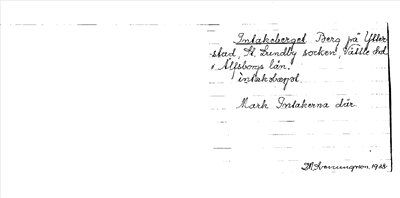 Intakeberget. Berg på Ytter
stad, St. Lundby socken, Vättle hd
i Älfsborgs län.
intaksbærjet.
Mark Intakerna där
1928